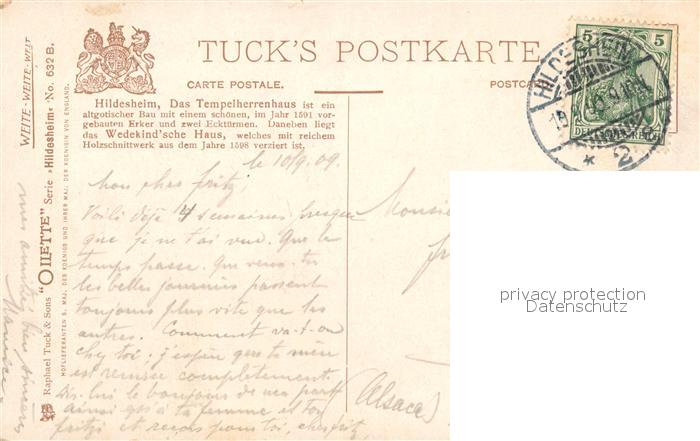 TUCK'S POSTKARTE.
CARTE POSTALE.
POSTCARD
Hildesheim, Das Tempelherrenhaus ist ein
altgotischer Bau mit einem schönen, im Jahr 1591 vor-
gebauten Erker und zwei Ecktürmen. Daneben liegt
das Wedekind'sche Haus, welches mit reichem
Holzschnittwerk aus dem Jahre 1598 verziert ist.
WEITE-WEITE-WELT
Raphael Tuck & Sons "OILETTE" Serie »Hildesheim« No. 632 B.
HOFLIEFERANTEN S. MAJ. DER KOENIGS UND IHRER MAJ. DER KOENIGIN VON ENGLAND.
HILDESHEIM
5 5
DEUTSCHES REICH
* 2
le 10/9. 09.
Mon cher fritz,
Voilà déjà 4 semaines presque
que je ne t'ai vue. Que le
temps passe. Que veux-tu
les belles journées passent
toujours plus vite que les
autres. Comment va-t-on
chez toi; j'espère que ta mère
est remise complètement.
Dis-lui le bonjour de ma part
ainsi qu'à ta femme et ton
fritzi et reçois pour toi, cher fritz,
mes amitiés bien sincères
Maurice
Monsie
(Alsace)
privacy protection
Datenschutz